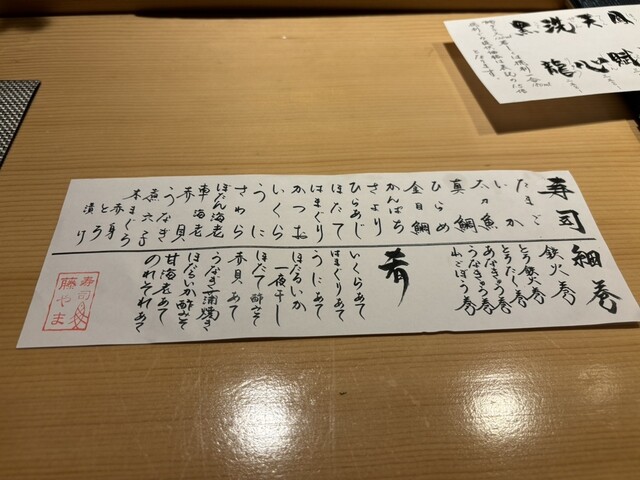 天賦
洗心
黒龍
寿司
たまご
いか
太刀魚
真鯛
ひらめ
金目鯛
かんぱち
さより
ひらあじ
ほたて
はまぐり
かつお
いくら
うに
さわら
ぼたん海老
車海老
赤貝
うなぎ
煮穴子
本まぐろ
赤身
とろ
漬け
細巻
鉄火巻
とろ鉄火巻
とろたく巻
あなきゅう巻
うなきゅう巻
山ごぼう巻
肴
いくらあて
はまぐりあて
うにあて
ほたるいか
一夜干し
ほたて酢みそ
赤貝あて
うなぎ蒲焼き
ほたるいか酢みそ
甘海老あて
のれそれあて
寿司
藤やま